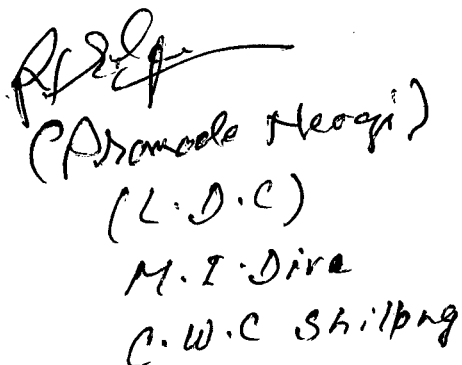 (Promode Neogi)
(L.D.C)
M.I.Dive
C.W.C Shillong